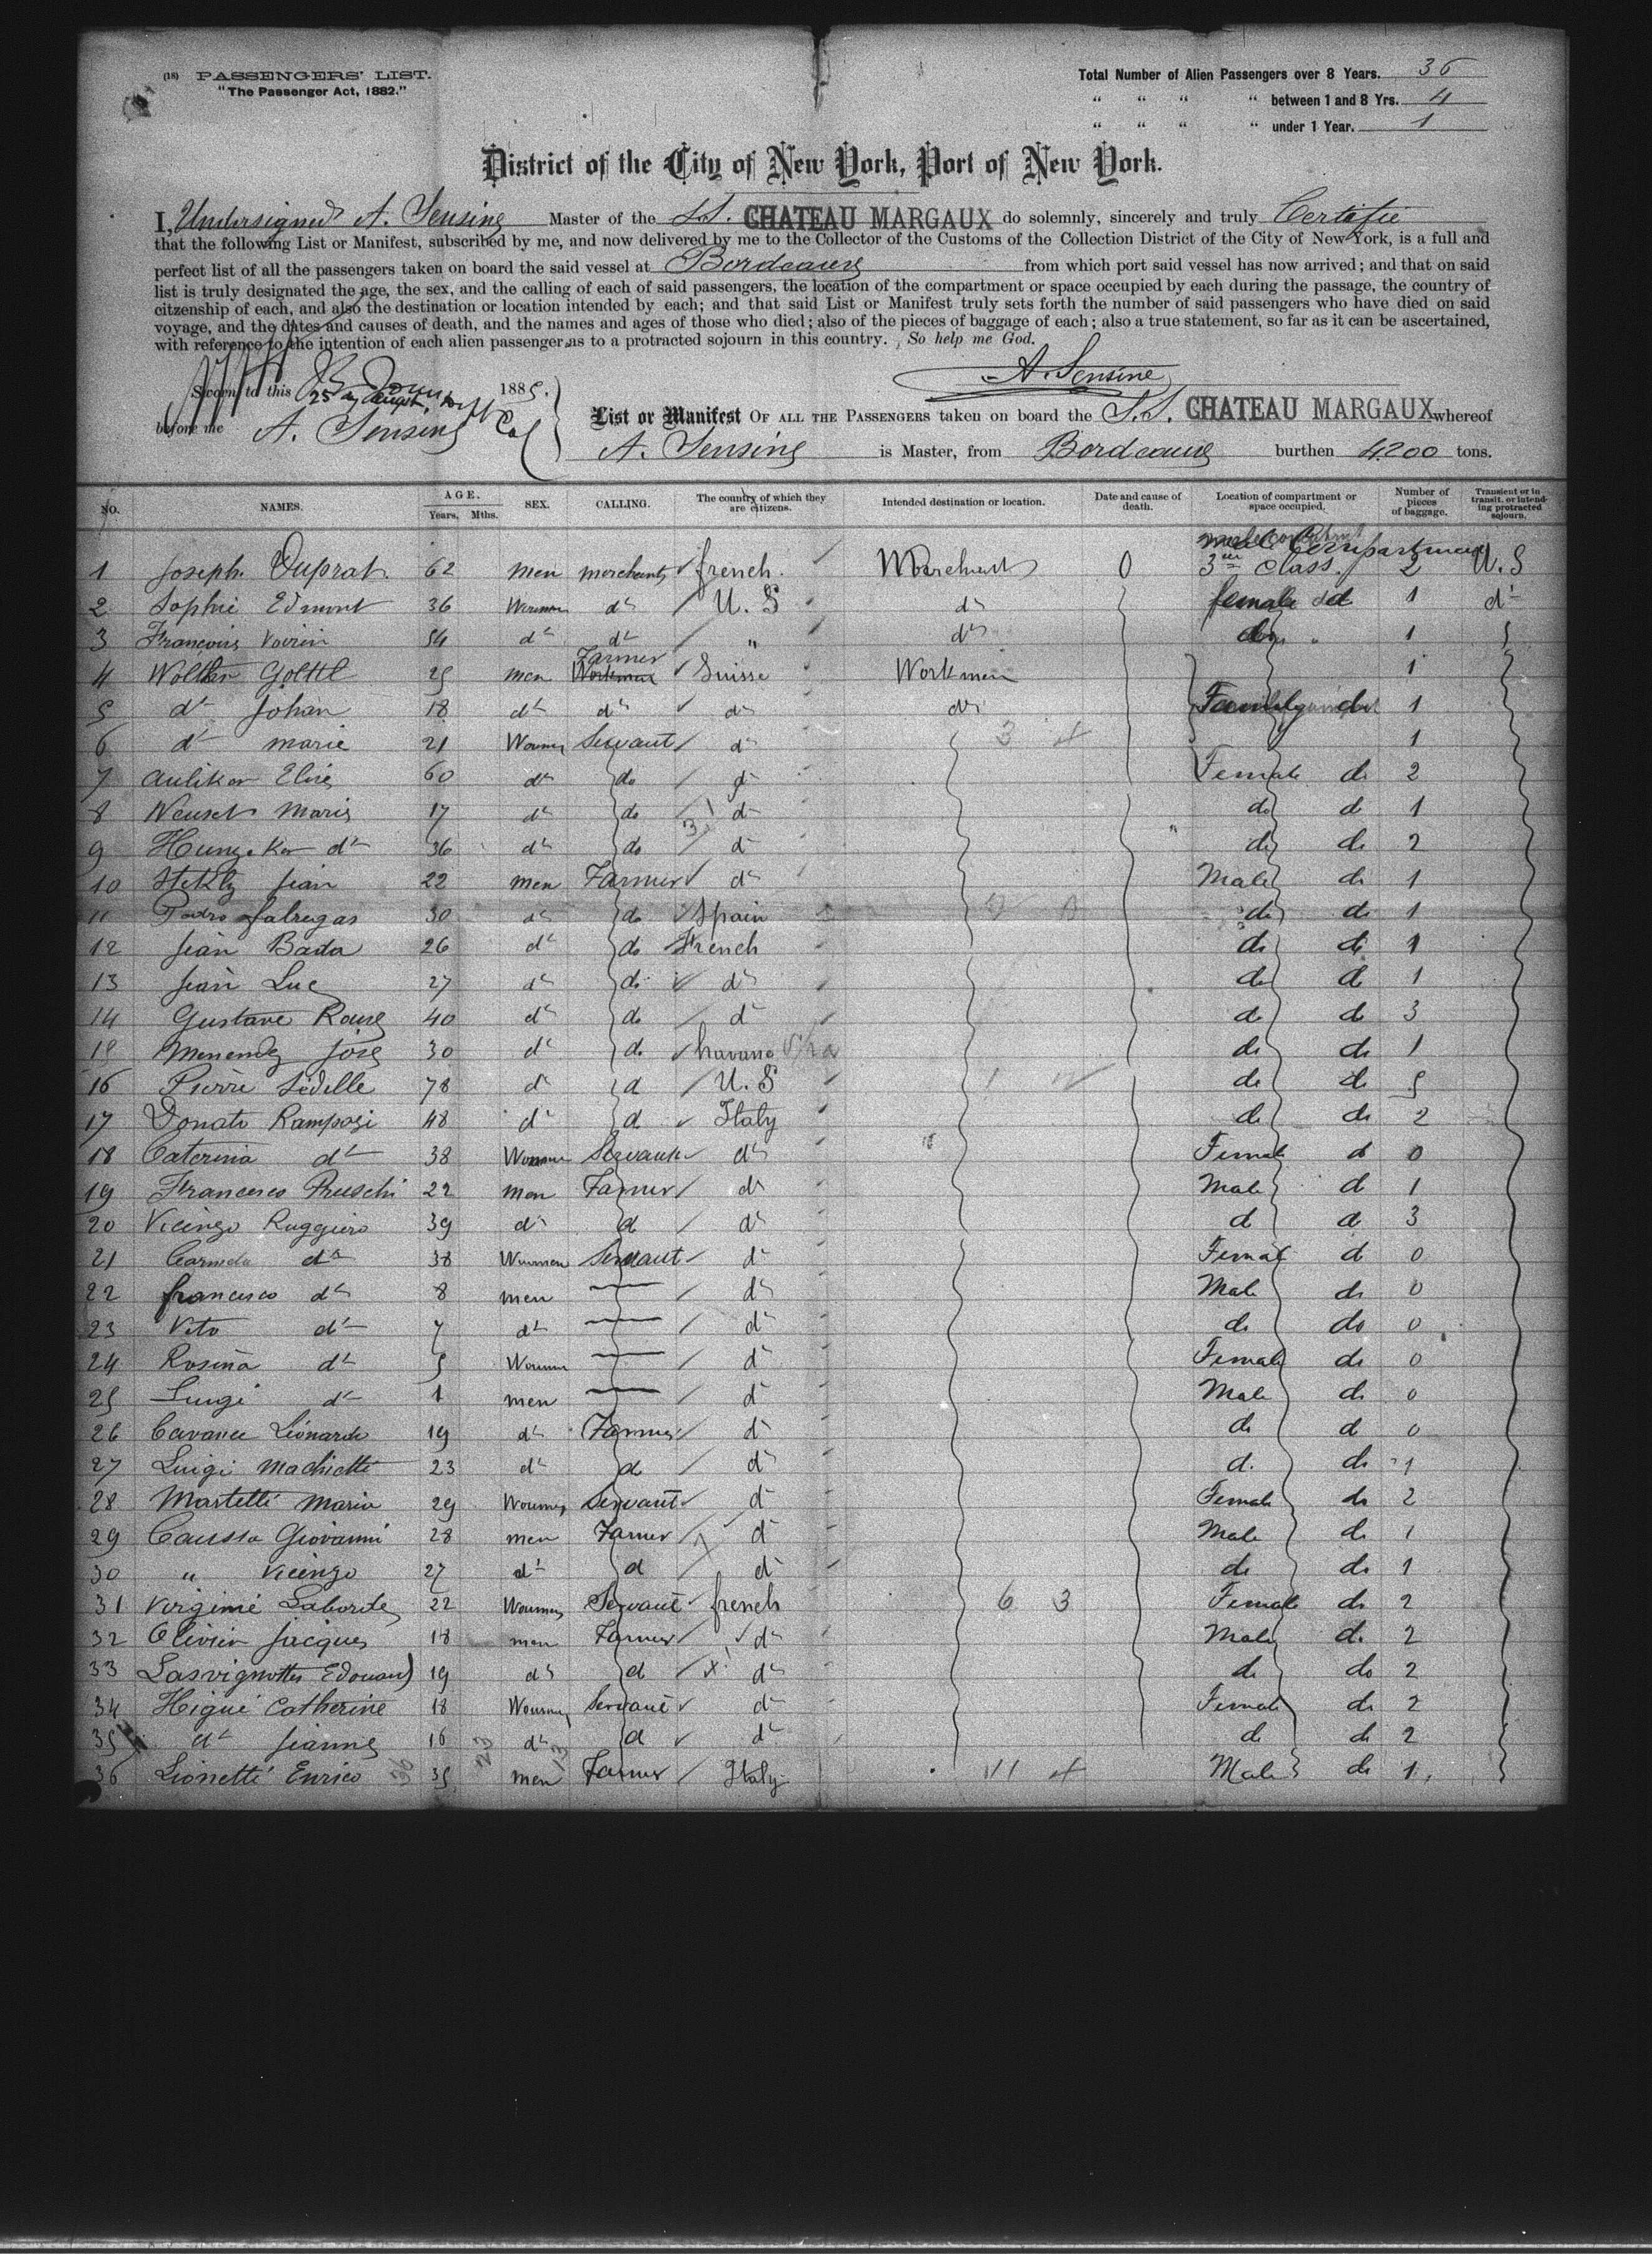 (18) PASSENGERS' LIST.
"The Passenger Act, 1882."
Total Number of Alien Passengers over 8 Years. 36
" " " " between 1 and 8 Yrs. 4
" " " " under 1 Year. 1
District of the City of New York, Port of New York.
I, Undersigned A. Sensine Master of the S.S. CHATEAU MARGAUX do solemnly, sincerely and truly Certifie
that the following List or Manifest, subscribed by me, and now delivered by me to the Collector of the Customs of the Collection District of the City of New York, is a full and
perfect list of all the passengers taken on board the said vessel at Bordeaux from which port said vessel has now arrived; and that on said
list is truly designated the age, the sex, and the calling of each of said passengers, the location of the compartment or space occupied by each during the passage, the country of
citzenship of each, and also the destination or location intended by each; and that said List or Manifest truly sets forth the number of said passengers who have died on said
voyage, and the dates and causes of death, and the names and ages of those who died; also of the pieces of baggage of each; also a true statement, so far as it can be ascertained,
with reference to the intention of each alien passenger as to a protracted sojourn in this country. So help me God.
A. Sensine
Sworn to this 25 1885.
before me A. Sensine
List or Manifest OF ALL THE PASSENGERS taken on board the S.S. CHATEAU MARGAUX whereof
A. Sensine is Master, from Bordeaux burthen 4200 tons.
NO. NAMES. AGE. Years, Mths. SEX. CALLING. The country of which they are citizens. Intended destination or location. Date and cause of death. Location of compartment or space occupied. Number of pieces of baggage. Transient or in transit, or intending protracted sojourn.
male Compartment
1 Joseph Duprat. 62 men merchants french. Merchants 0 3me Class. 2 U.S
2 Sophie Edmont 36 Woemen do U.S do female do 1 do
3 François Voirin 54 do do " do do " 1
4 Wolther Golttl 25 men Farmer Workmen Suisse Workmen 1
5 do Johan 18 do do do do Family do 1
6 do marie 21 Woemen Servant do 3 1
7 Aulikor Elise 60 do do do Female do 2
8 Weuset Marie 17 do do do do do 1
9 Hunzeker do 36 do do do do do 2
10 Stekly Jean 22 men Farmer do Male do 1
11 Pedro Fabregas 30 do do Spain do do 1
12 Jean Bada 26 do do French do do 1
13 Jean Luc 27 do do do do do 1
14 Gustave Roux 40 do do do do do 3
15 Menendez José 30 do do havana do do 1
16 Pierre Sédille 78 do d U.S 1 do do 5
17 Donato Ramposi 48 do d Italy do do 2
18 Caterina do 38 Woemen Servant do Female d 0
19 Francesco Pruschi 22 men Farmer do Male d 1
20 Vicinzo Ruggiero 39 do d do d d 3
21 Carmela do 38 Woemen Servant do Female d 0
22 francisco do 8 men — do Male do 0
23 Vito do 7 do — do do do 0
24 Rosina do 5 Woemen — do Female do 0
25 Luigi do 1 men — do Male do 0
26 Cavance Lionardo 19 do Farmer do do d 0
27 Luigi Machietti 23 do d do d. do 1
28 Martelli Maria 29 Woemen Servant do Female do 2
29 Caussa Giovanni 28 men Farmer do Male do 1
30 " Vicinzo 27 do d do do do 1
31 Virginie Laborde 22 Woemen Servant french 6 3 Female do 2
32 Olivier Jacques 18 men Farmer do Male do 2
33 Lasvignottes Edouard 19 do d do do do 2
34 Higué Catherine 18 Woemen Servant do Female do 2
35 do Jeanne 16 do d do do do 2
36 Lionetti Enrico 35 men Farmer Italy 11 Male do 1